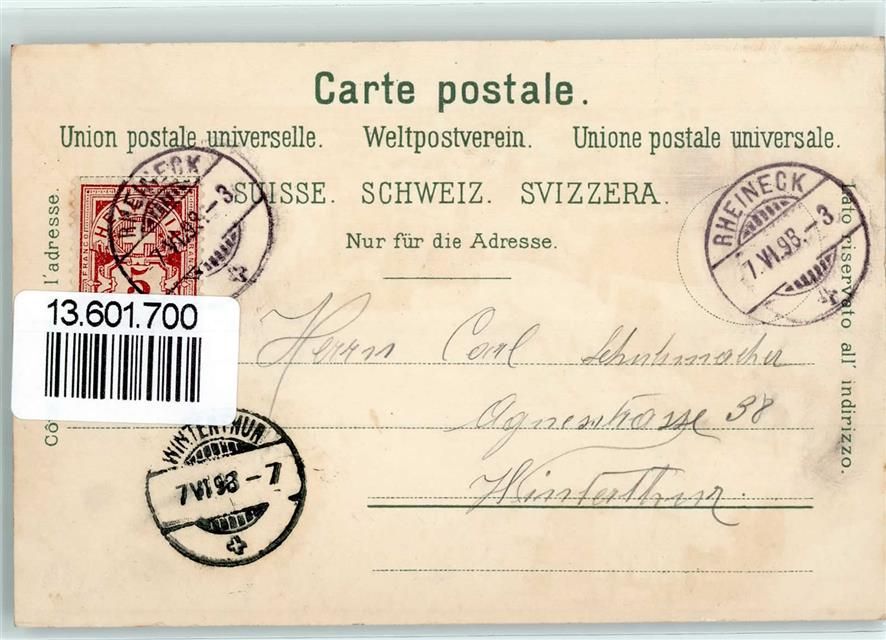 Carte postale.
Union postale universelle. Weltpostverein. Unione postale universale.
SUISSE. SCHWEIZ. SVIZZERA.
Nur für die Adresse.
l'adresse.
Lato riservato all' indirizzo.
RHEINECK
7.VI.98.-3
RHEINECK
7.VI.98.-3
13.601.700
Herrn Carl Schuhmacher
Agnesstrasse 38
Winterthur
WINTERTHUR
7 VI 98 - 7